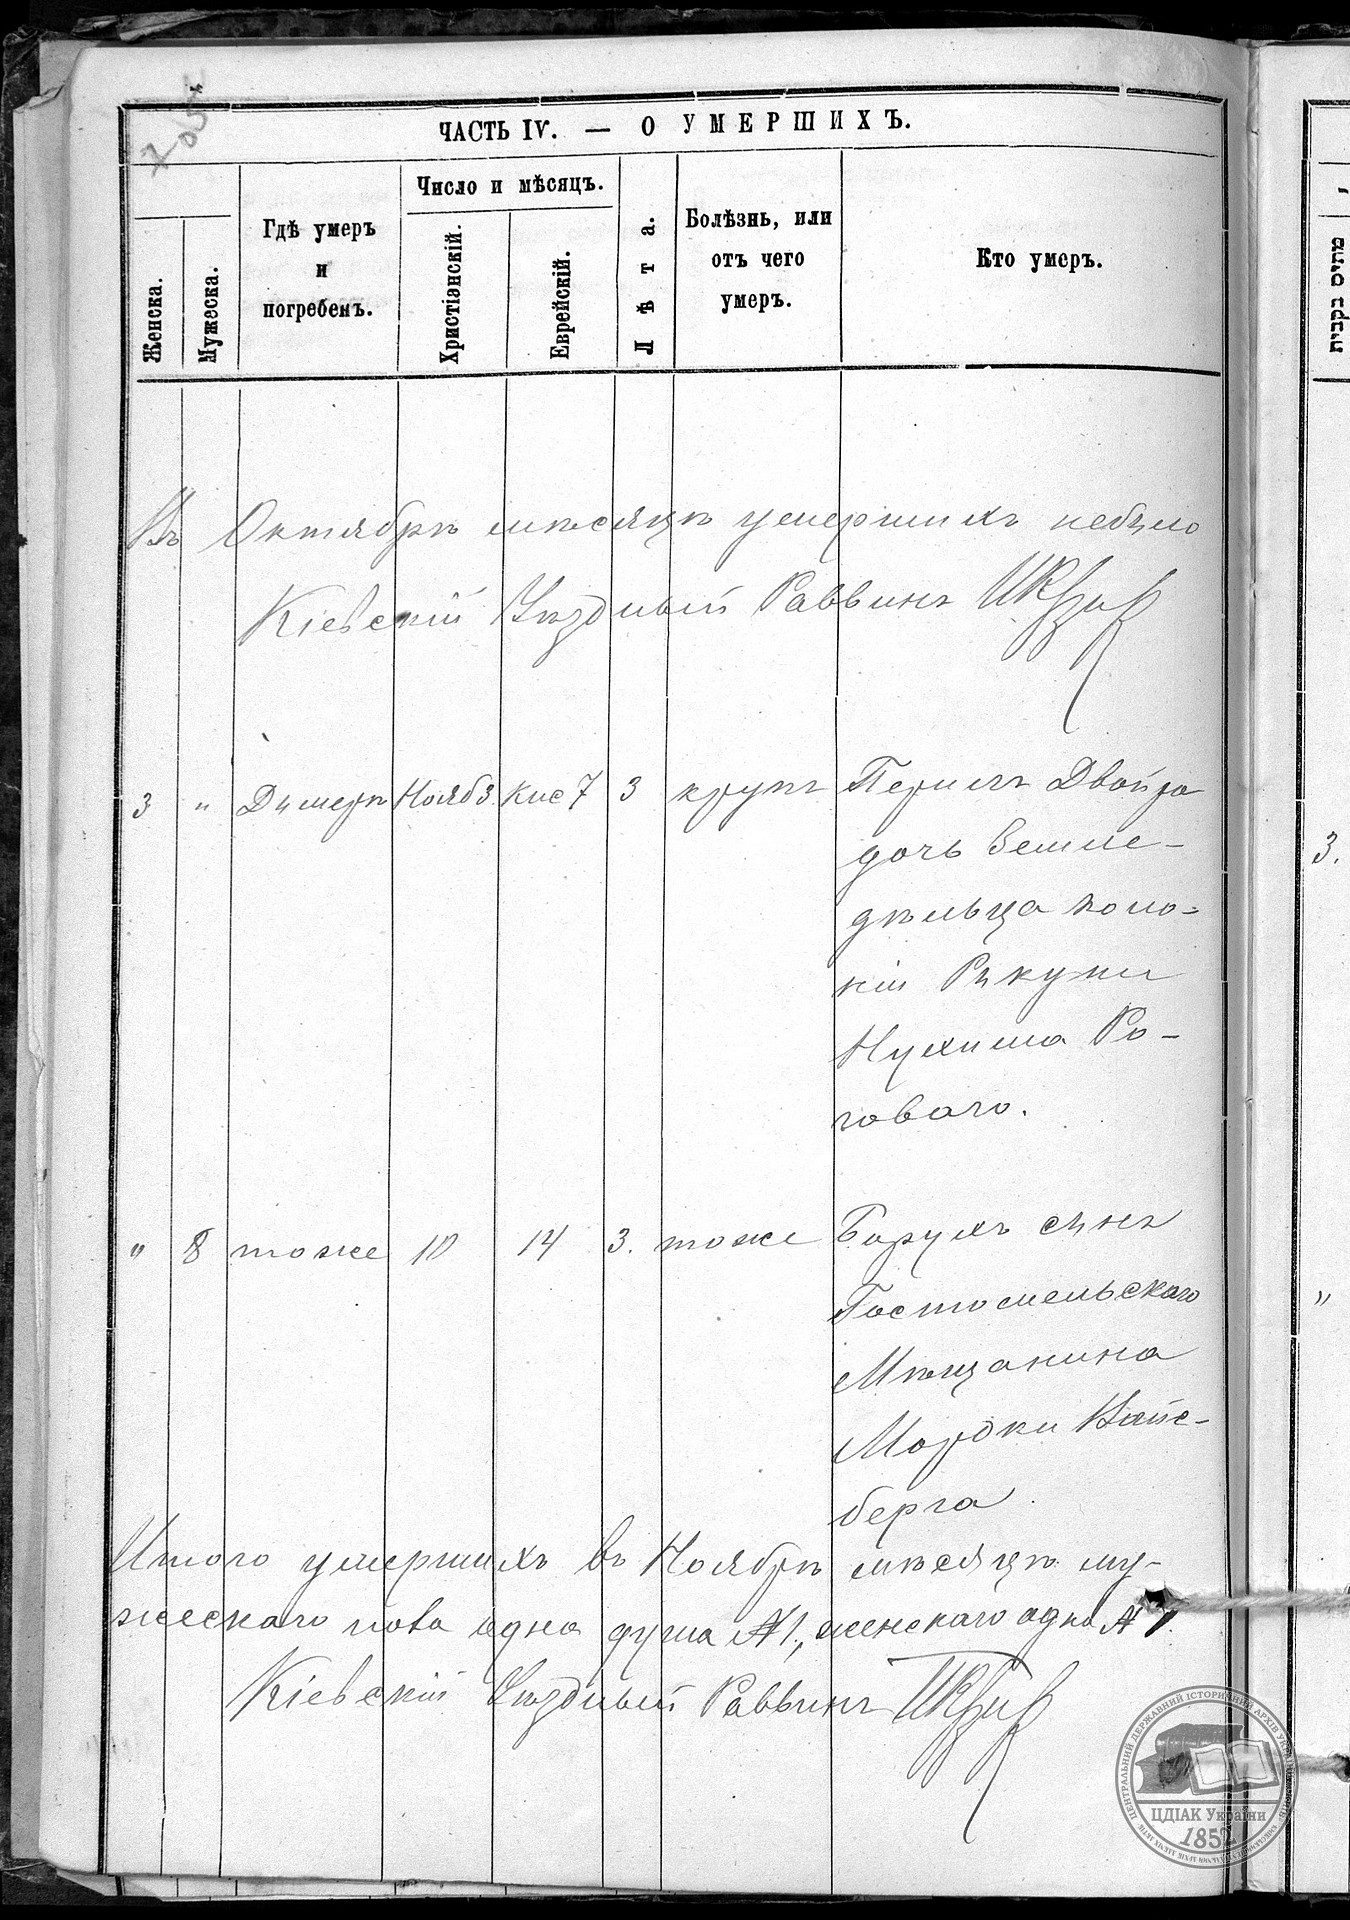 ЧАСТЬ IV. — О УМЕРШИХЪ.
Женска.
Мужеска.
Гдѣ умеръ
и
погребенъ.
Число и мѣсяцъ.
Христіэнскій.
Еврейскій.
Лѣта.
Болѣзнь, или
отъ чего
умеръ.
Кто умеръ.
Въ Октябрѣ мѣсяцѣ умершихъ небыло
Кіевскій Уѣздный Раввинъ
3 " Дымеръ Нояб 3 Кис 7 3 крупъ Перлъ Двойра
дочь Земле-
дѣльца коло-
ніи Рыкуни
Нухима Ро-
говаго.
" 8 тоже 10 14 3. тоже Борухъ сынъ
Гостомельскаго
Мѣщанина
Мордки Вайс-
берга
Итого умершихъ въ Ноябрѣ мѣсяцѣ му-
жескаго пола одна душа №1, женскаго одна № 1.
Кіевскій Уѣздный Раввинъ
נקבית
3.
"
ЦЕНТРАЛЬНИЙ ДЕРЖАВНИЙ ІСТОРИЧНИЙ АРХІВ УКРАЇНИ
ЦДІАК України
1852